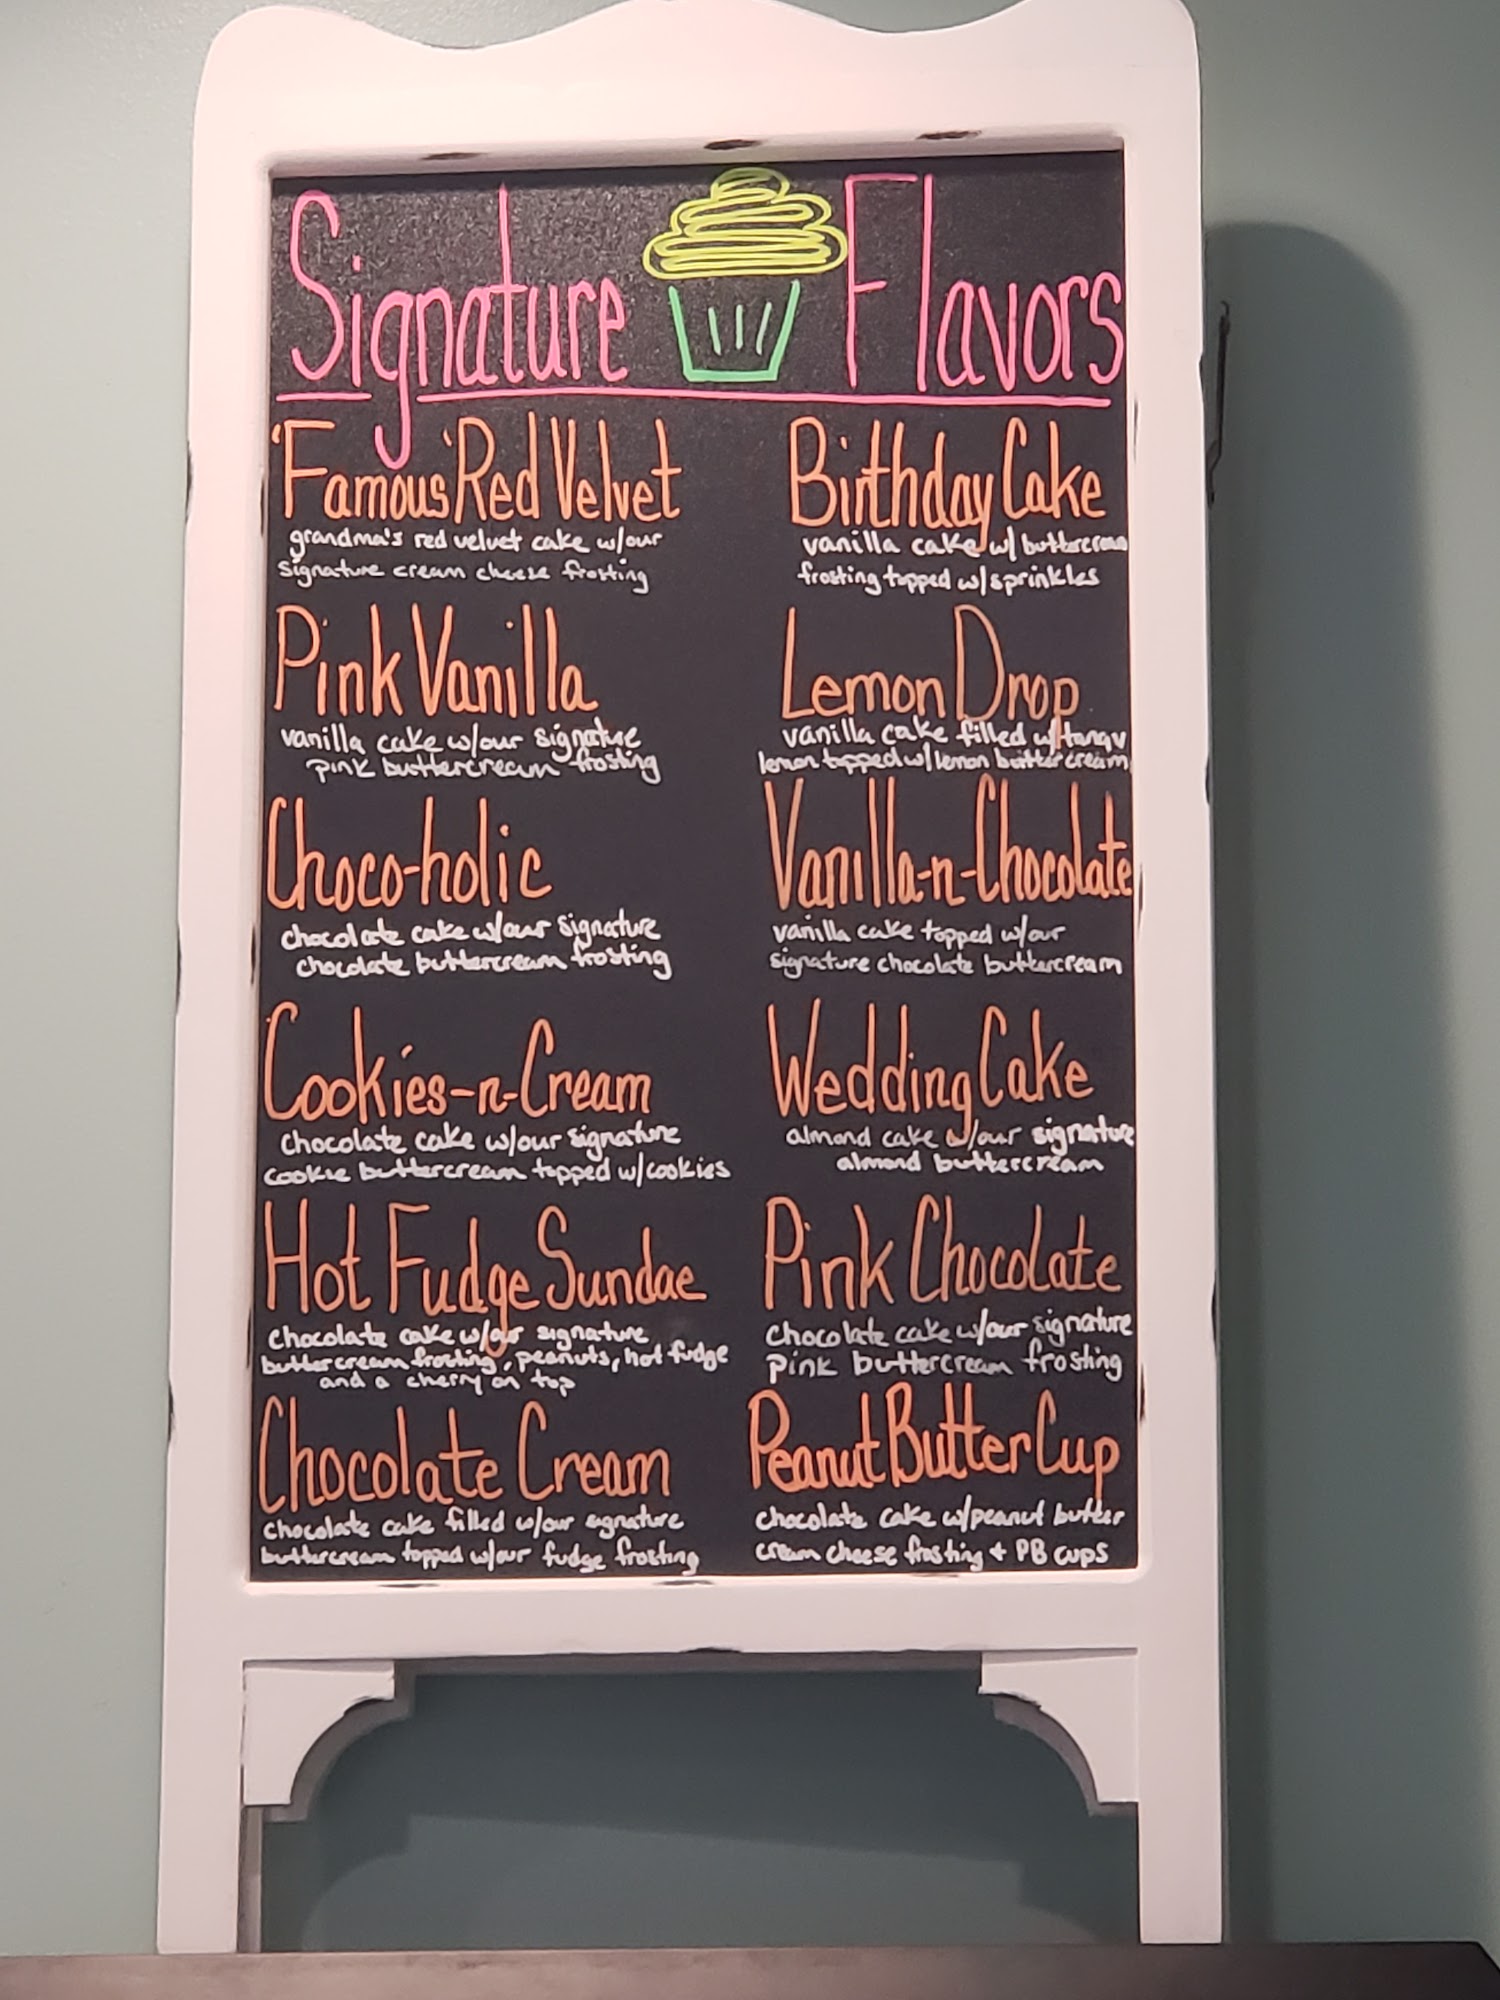 Signature Flavors
'Famous' Red Velvet
grandma's red velvet cake w/our
signature cream cheese frosting
Pink Vanilla
vanilla cake w/our signature
pink buttercream frosting
Choco-holic
chocolate cake w/our signature
chocolate buttercream frosting
Cookies-n-Cream
chocolate cake w/our signature
cookie buttercream topped w/cookies
Hot Fudge Sundae
chocolate cake w/our signature
buttercream frosting, peanuts, hot fudge
and a cherry on top
Chocolate Cream
chocolate cake filled w/our signature
buttercream topped w/our fudge frosting
Birthday Cake
vanilla cake w/ buttercream
frosting topped w/sprinkles
Lemon Drop
vanilla cake filled w/tangy
lemon topped w/lemon buttercream
Vanilla-n-Chocolate
vanilla cake topped w/our
signature chocolate buttercream
Wedding Cake
almond cake w/our signature
almond buttercream
Pink Chocolate
chocolate cake w/our signature
pink buttercream frosting
Peanut Butter Cup
chocolate cake w/peanut butter
cream cheese frosting + PB cups